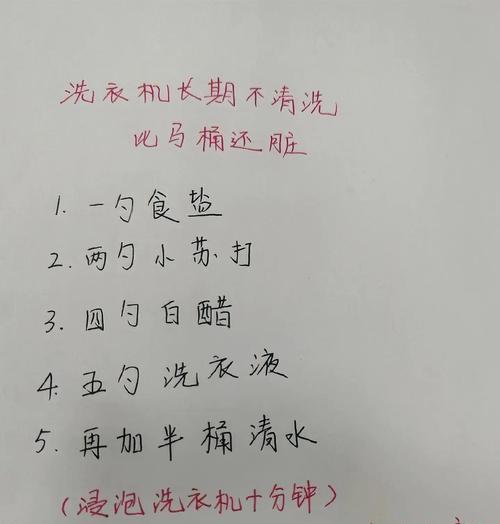 洗衣机长期不清洗
比马桶还脏
1. 一勺食盐
2. 两勺小苏打
3. 四勺白醋
4. 五勺洗衣液
5. 再加半桶清水
(浸泡洗衣机十分钟)